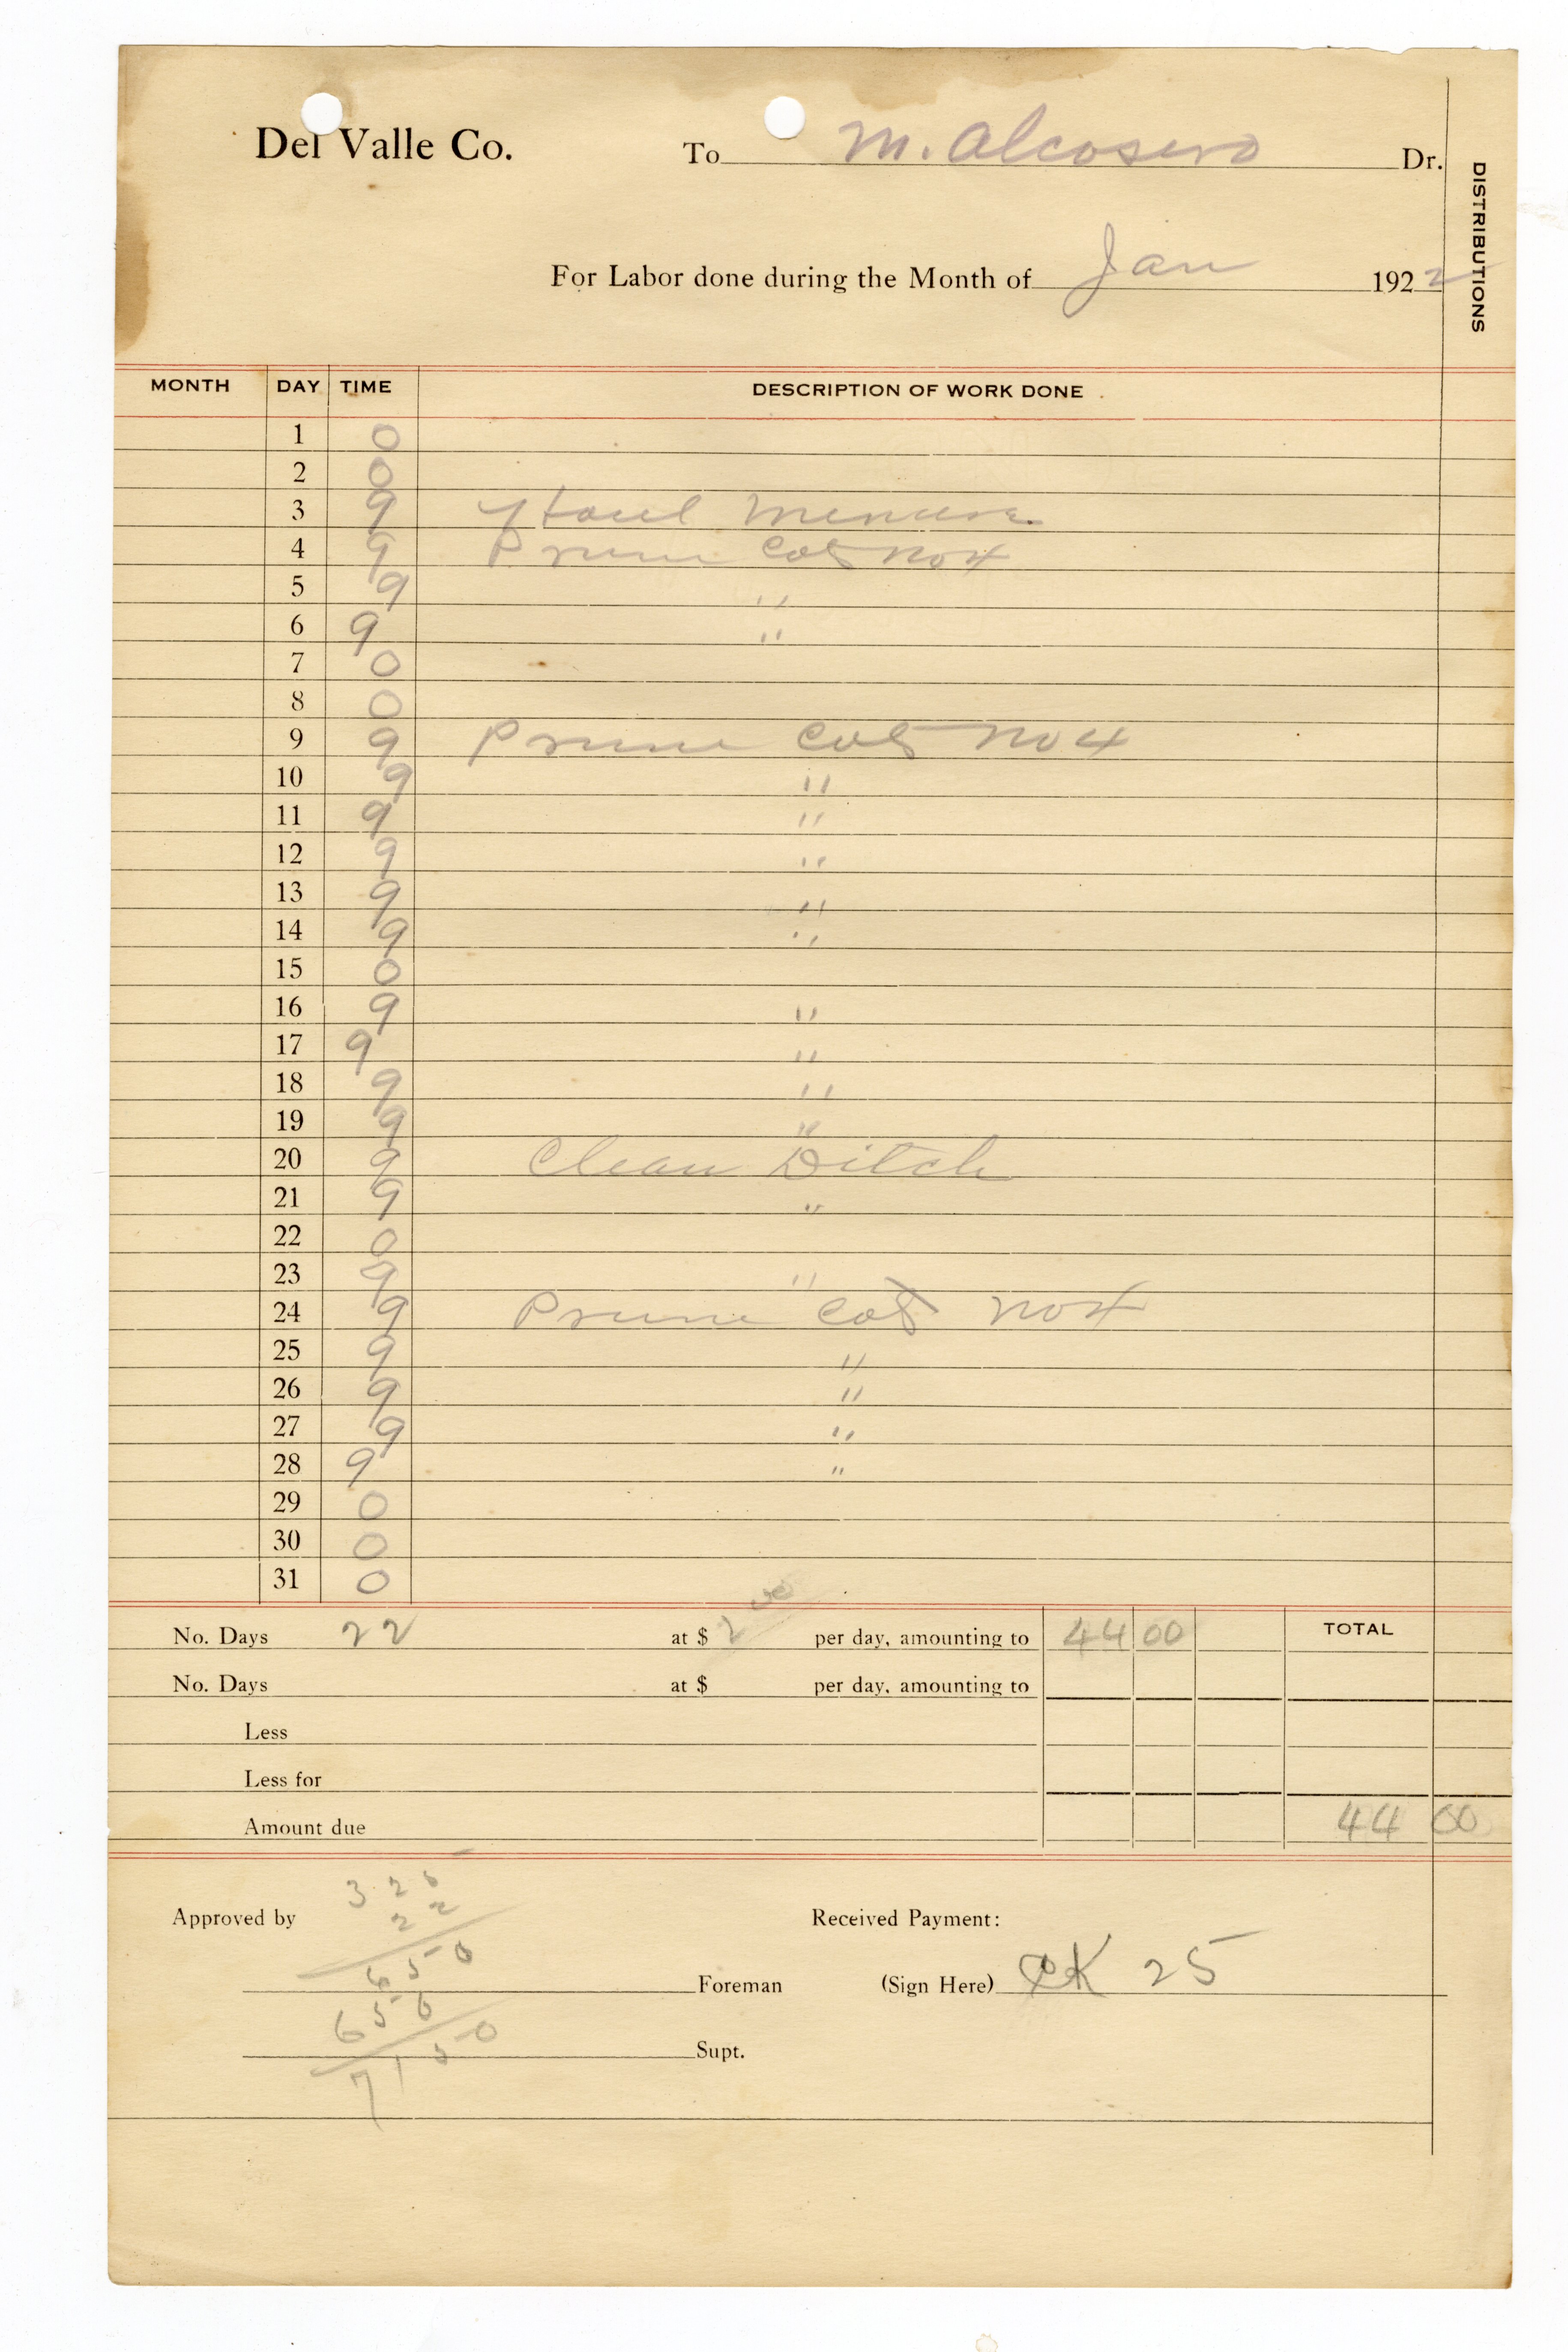 Del Valle Co. To M. Alcosero Dr.
DISTRIBUTIONS
For Labor done during the Month of Jan 1922
MONTH DAY TIME DESCRIPTION OF WORK DONE
1 0
2 0
3 9 Haul Menure
4 9 Prune Cots No 4
5 9 "
6 9 "
7 0
8 0
9 9 Prune Cots No 4
10 9 "
11 9 "
12 9 "
13 9 "
14 9 "
15 0
16 9 "
17 9 "
18 9 "
19 9 "
20 9 Clean Ditch
21 9 "
22 0
23 9 "
24 9 Prune Cots No 4
25 9 "
26 9 "
27 9 "
28 9 "
29 0
30 0
31 0
No. Days 22 at $ 2 00 per day, amounting to 44 00 TOTAL
No. Days at $ per day, amounting to
Less
Less for
Amount due 44 00
3 25
Approved by 22 Received Payment:
6 5 0
Foreman (Sign Here) CK 25
65 0
Supt.
71 5 0